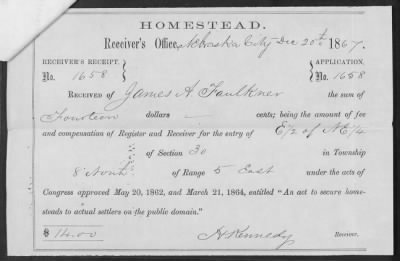 HOMESTEAD.
Receiver's Office, Nebraska City Dec 20th 1867.
RECEIVER'S RECEIPT, APPLICATION,
No. 1658 No. 1658
RECEIVED OF James A Faulkner the sum of
Fourteen dollars — cents; being the amount of fee
and compensation of Register and Receiver for the entry of E/2 of NE/4
of Section 30 in Township
8 North of Range 5 East under the acts of
Congress approved May 20, 1862, and March 21, 1864, entitled "An act to secure home-
steads to actual settlers on the public domain."
$ 14.00 H Kennedy Receiver.